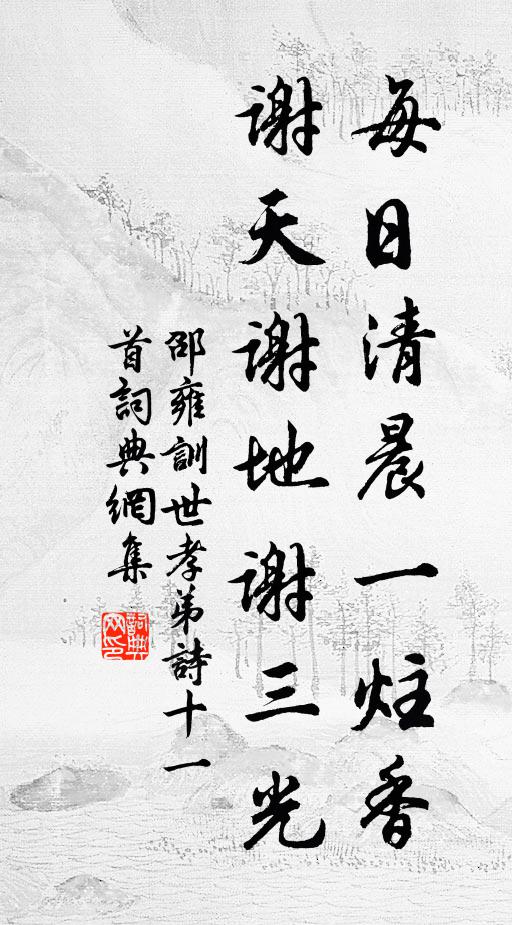 每日清晨一炷香
謝天謝地謝三光
邵雍訓世孝弟詩十一
首詞典網集
詞典
网印